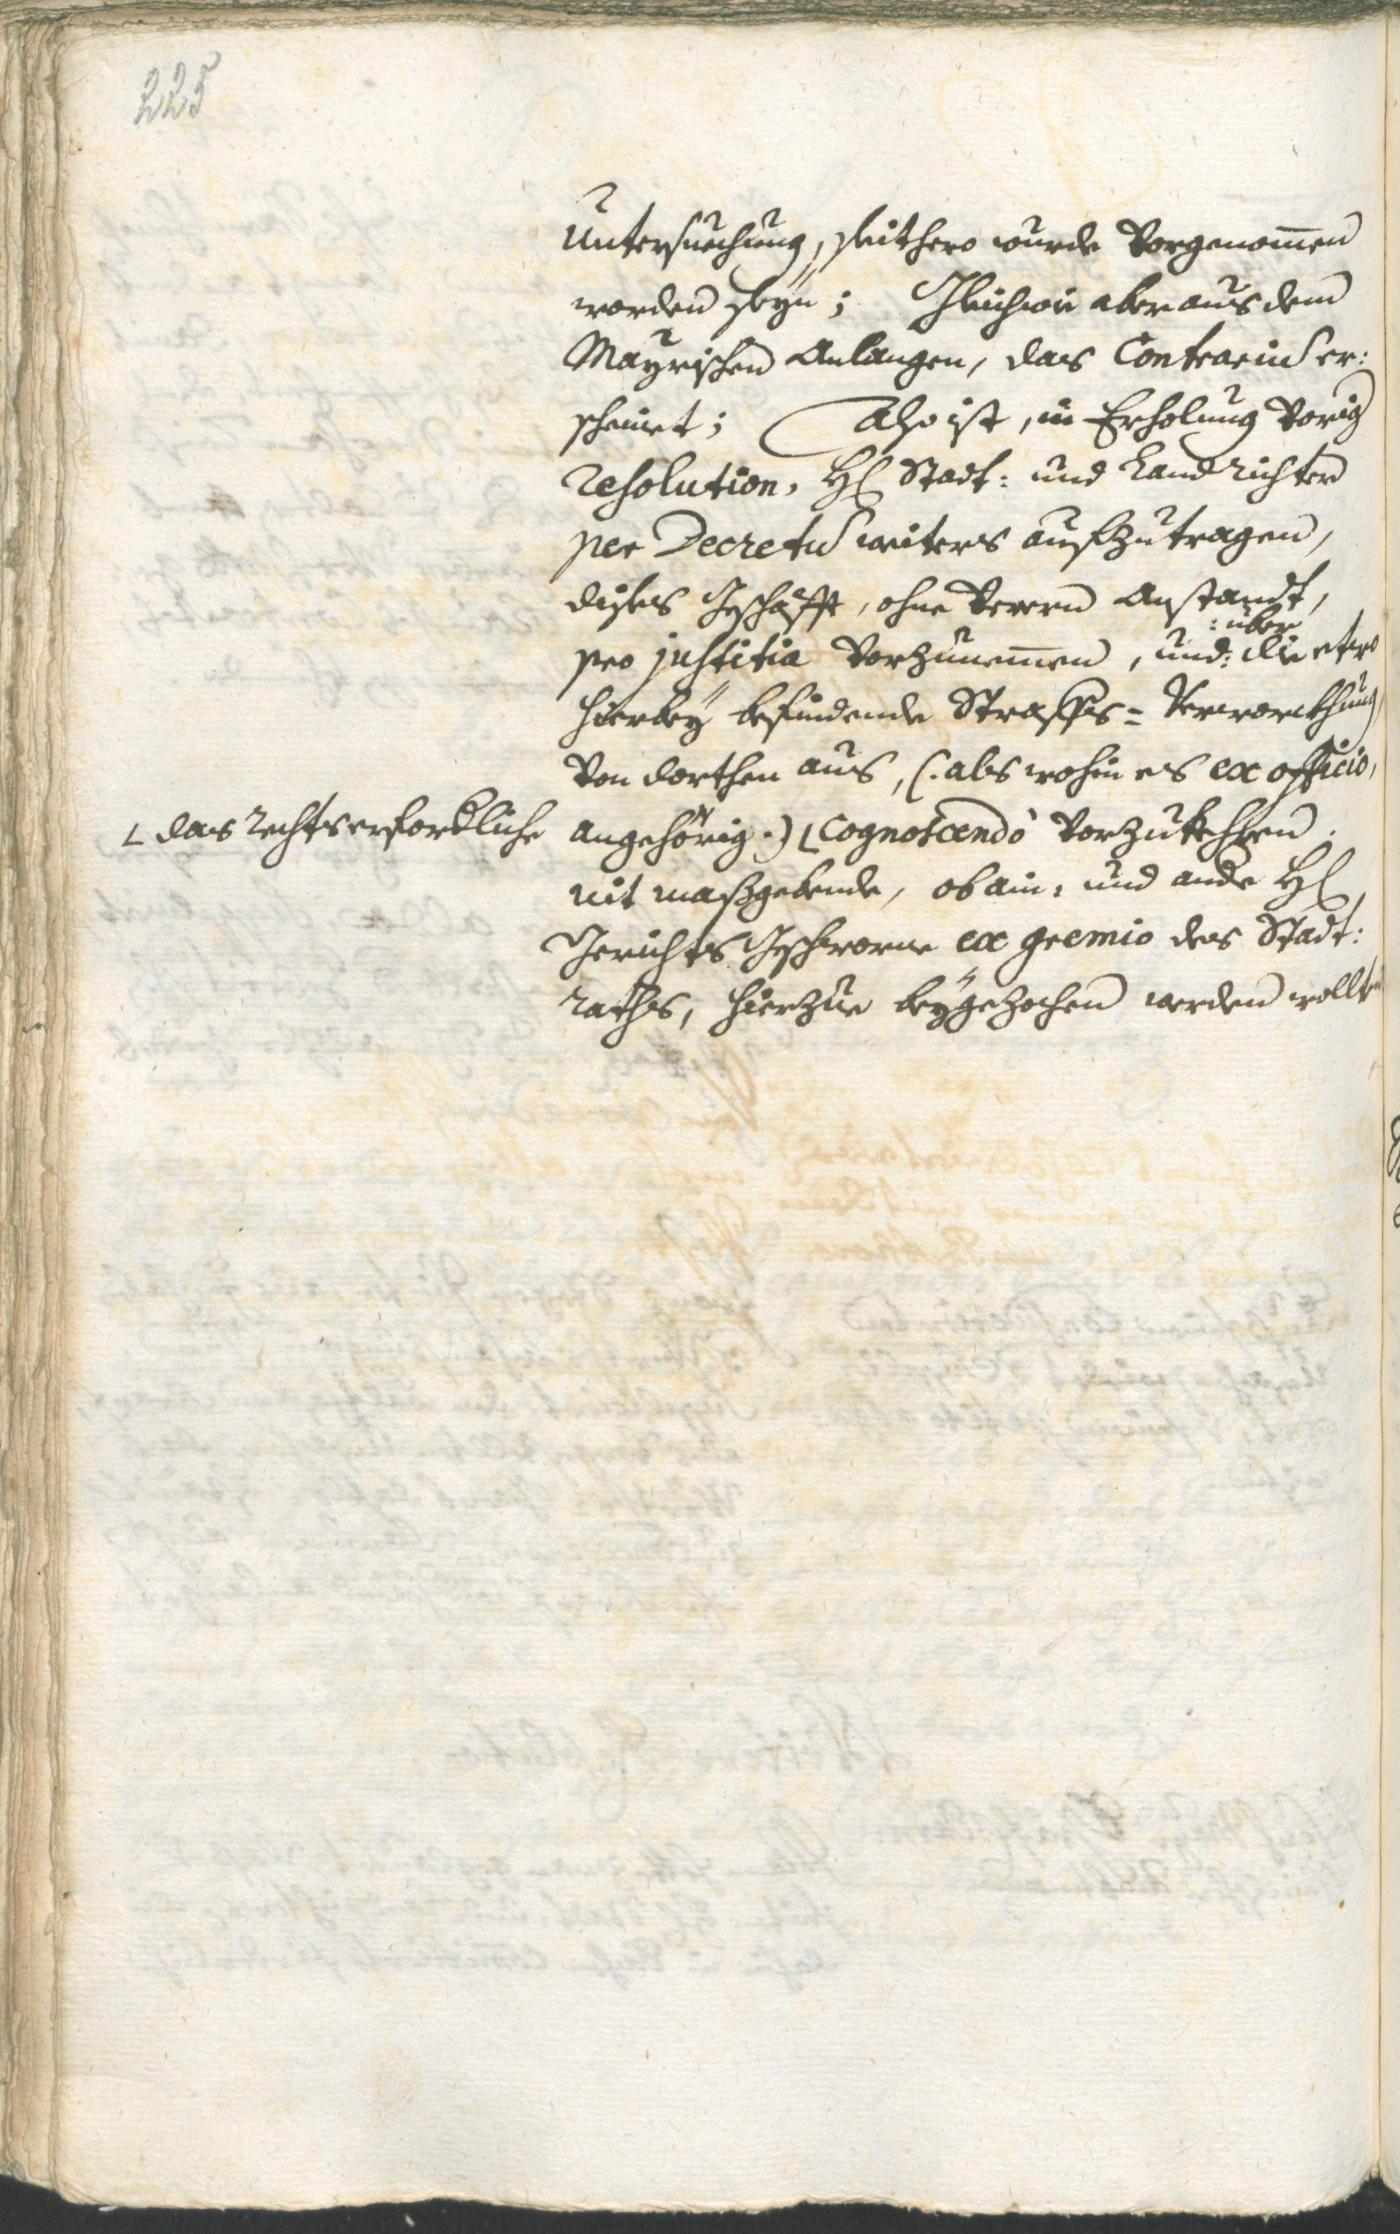 225
Untersuechung, seithero wurde vorgenom̅en
worden seÿn; Gleichwie aber aus dem
Maÿrischen Anlangen, das Contrarium er:
scheinet; Also ist, in Erholung vorig
resolution, H: Stadt: und Landrichtern
per Decretum weiters aufzutragen,
dises Geschäfft, ohne verern Anstandt,
pro justitia vorzunem̅en, und: :über
die etwo
hierbeÿ befindende Straffs= Verworkhung
von dorthen aus, (: als wohin es ex officio,
angehörig :) cognoscendo vorzukehren.
das rechtserforderliche
nit maßgebende, ob ain: und andere H:
Gerichts Geschworne ex gremio des Stadt:
raths, hierzue beÿgezochen werden wollte